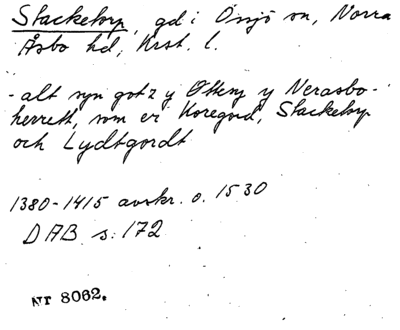 Stacketorp, gd i Össjö sn, Norra
Åsbo hd, Krst. l.
- alt syn gotz y Ottens y Nerasbo-
herrett, som er Koregord, Stacketorp
och Lydtgordt
1380-1415 avskr. o. 1530
DAB s. 172
NT 8062.